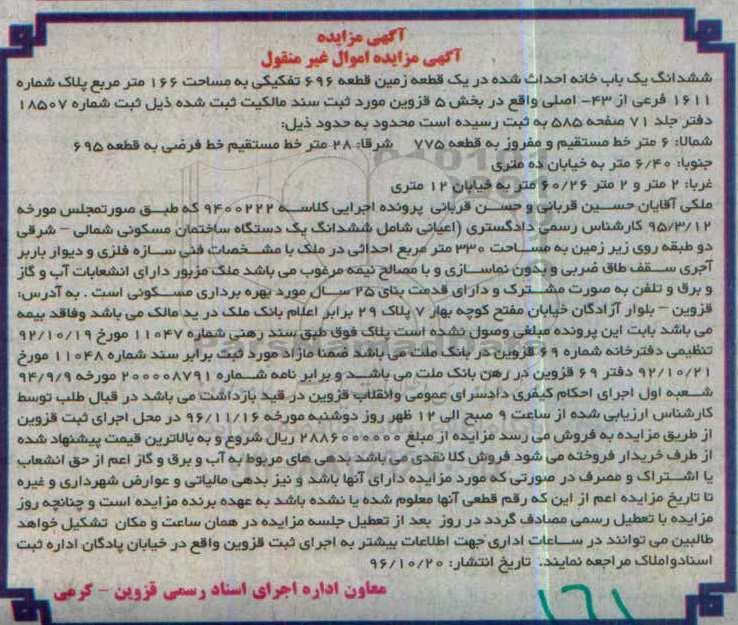 آگهی مزایده
آگهی مزایده اموال غیر منقول
ششدانگ یک باب خانه احداث شده در یک قطعه زمین قطعه ۶۹۶ تفکیکی به مساحت ۱۶۶ متر مربع پلاک شماره
۱۶۱۱ فرعی از ۴۳- اصلی واقع در بخش ۵ قزوین مورد ثبت سند مالکیت ثبت شده ذیل ثبت شماره ۱۸۵۰۷
دفتر جلد ۷۱ صفحه ۵۸۵ به ثبت رسیده است محدود به حدود ذیل:
شمالا: ۶ متر خط مستقیم و مفروز به قطعه ۷۷۵ شرقا: ۲۸ متر خط مستقیم خط فرضی به قطعه ۶۹۵
جنوبا: ۶/۴۰ متر به خیابان ده متری
غربا: ۲ متر و ۲ متر ۶۰/۲۶ متر به خیابان ۱۲ متری
ملکی آقایان حسین قربانی و حسن قربانی پرونده اجرایی کلاسه ۹۴۰۰۲۲۲ که طبق صورتمجلس مورخه
۹۵/۳/۱۲ کارشناس رسمی دادگستری (اعیانی شامل ششدانگ یک دستگاه ساختمان مسکونی شمالی – شرقی
دو طبقه روی زیر زمین به مساحت ۳۳۰ متر مربع احداثی در ملک با مشخصات فنی سازه فلزی و دیوار باربر
آجری سقف طاق ضربی و بدون نماسازی و با مصالح نیمه مرغوب می باشد ملک مزبور دارای انشعابات آب و گاز
و برق و تلفن به صورت مشترک و دارای قدمت بنای ۲۵ سال مورد بهره برداری مسکونی است . به آدرس:
قزوین – بلوار آزادگان خیابان مفتح کوچه بهار ۷ پلاک ۲۹ برابر اعلام بانک ملک در ید مالک می باشد وفاقد بیمه
می باشد بابت این پرونده مبلغی وصول نشده است پلاک فوق طبق سند رهنی شماره ۱۱۰۴۷ مورخ ۹۲/۱۰/۱۹
تنظیمی دفترخانه شماره ۶۹ قزوین در بانک ملت می باشد ضمنا مازاد مورد ثبت برابر سند شماره ۱۱۰۴۸ مورخ
۹۲/۱۰/۲۱ دفتر ۶۹ قزوین در رهن بانک ملت می باشد و برابر نامه شماره ۲۰۰۰۰۸۷۹۱ مورخه ۹۴/۹/۹
شعبه اول اجرای احکام کیفری دادسرای عمومی وانقلاب قزوین در قید بازداشت می باشد در قبال طلب توسط
کارشناس ارزیابی شده از ساعت ۹ صبح الی ۱۲ ظهر روز دوشنبه مورخه ۹۶/۱۱/۱۶ در محل اجرای ثبت قزوین
از طریق مزایده به فروش می رسد مزایده از مبلغ ۲۸۸۶۰۰۰۰۰۰ ریال شروع و به بالاترین قیمت پیشنهاد شده
از طرف خریدار فروخته می شود فروش کلا نقدی می باشد بدهی های مربوط به آب و برق و گاز اعم از حق انشعاب
یا اشتراک و مصرف در صورتی که مورد مزایده دارای آنها باشد و نیز بدهی مالیاتی و عوارض شهرداری و غیره
تا تاریخ مزایده اعم از این که رقم قطعی آنها معلوم شده یا نشده باشد به عهده برنده مزایده است و چنانچه روز
مزایده با تعطیل رسمی مصادف گردد در روز بعد از تعطیل جلسه مزایده در همان ساعت و مکان تشکیل خواهد
طالبین می توانند در ساعات اداری جهت اطلاعات بیشتر به اجرای ثبت قزوین واقع در خیابان پادگان اداره ثبت
اسنادواملاک مراجعه نمایند. تاریخ انتشار: ۹۶/۱۰/۲۰
معاون اداره اجرای اسناد رسمی قزوین - کرمی
۱۶۱